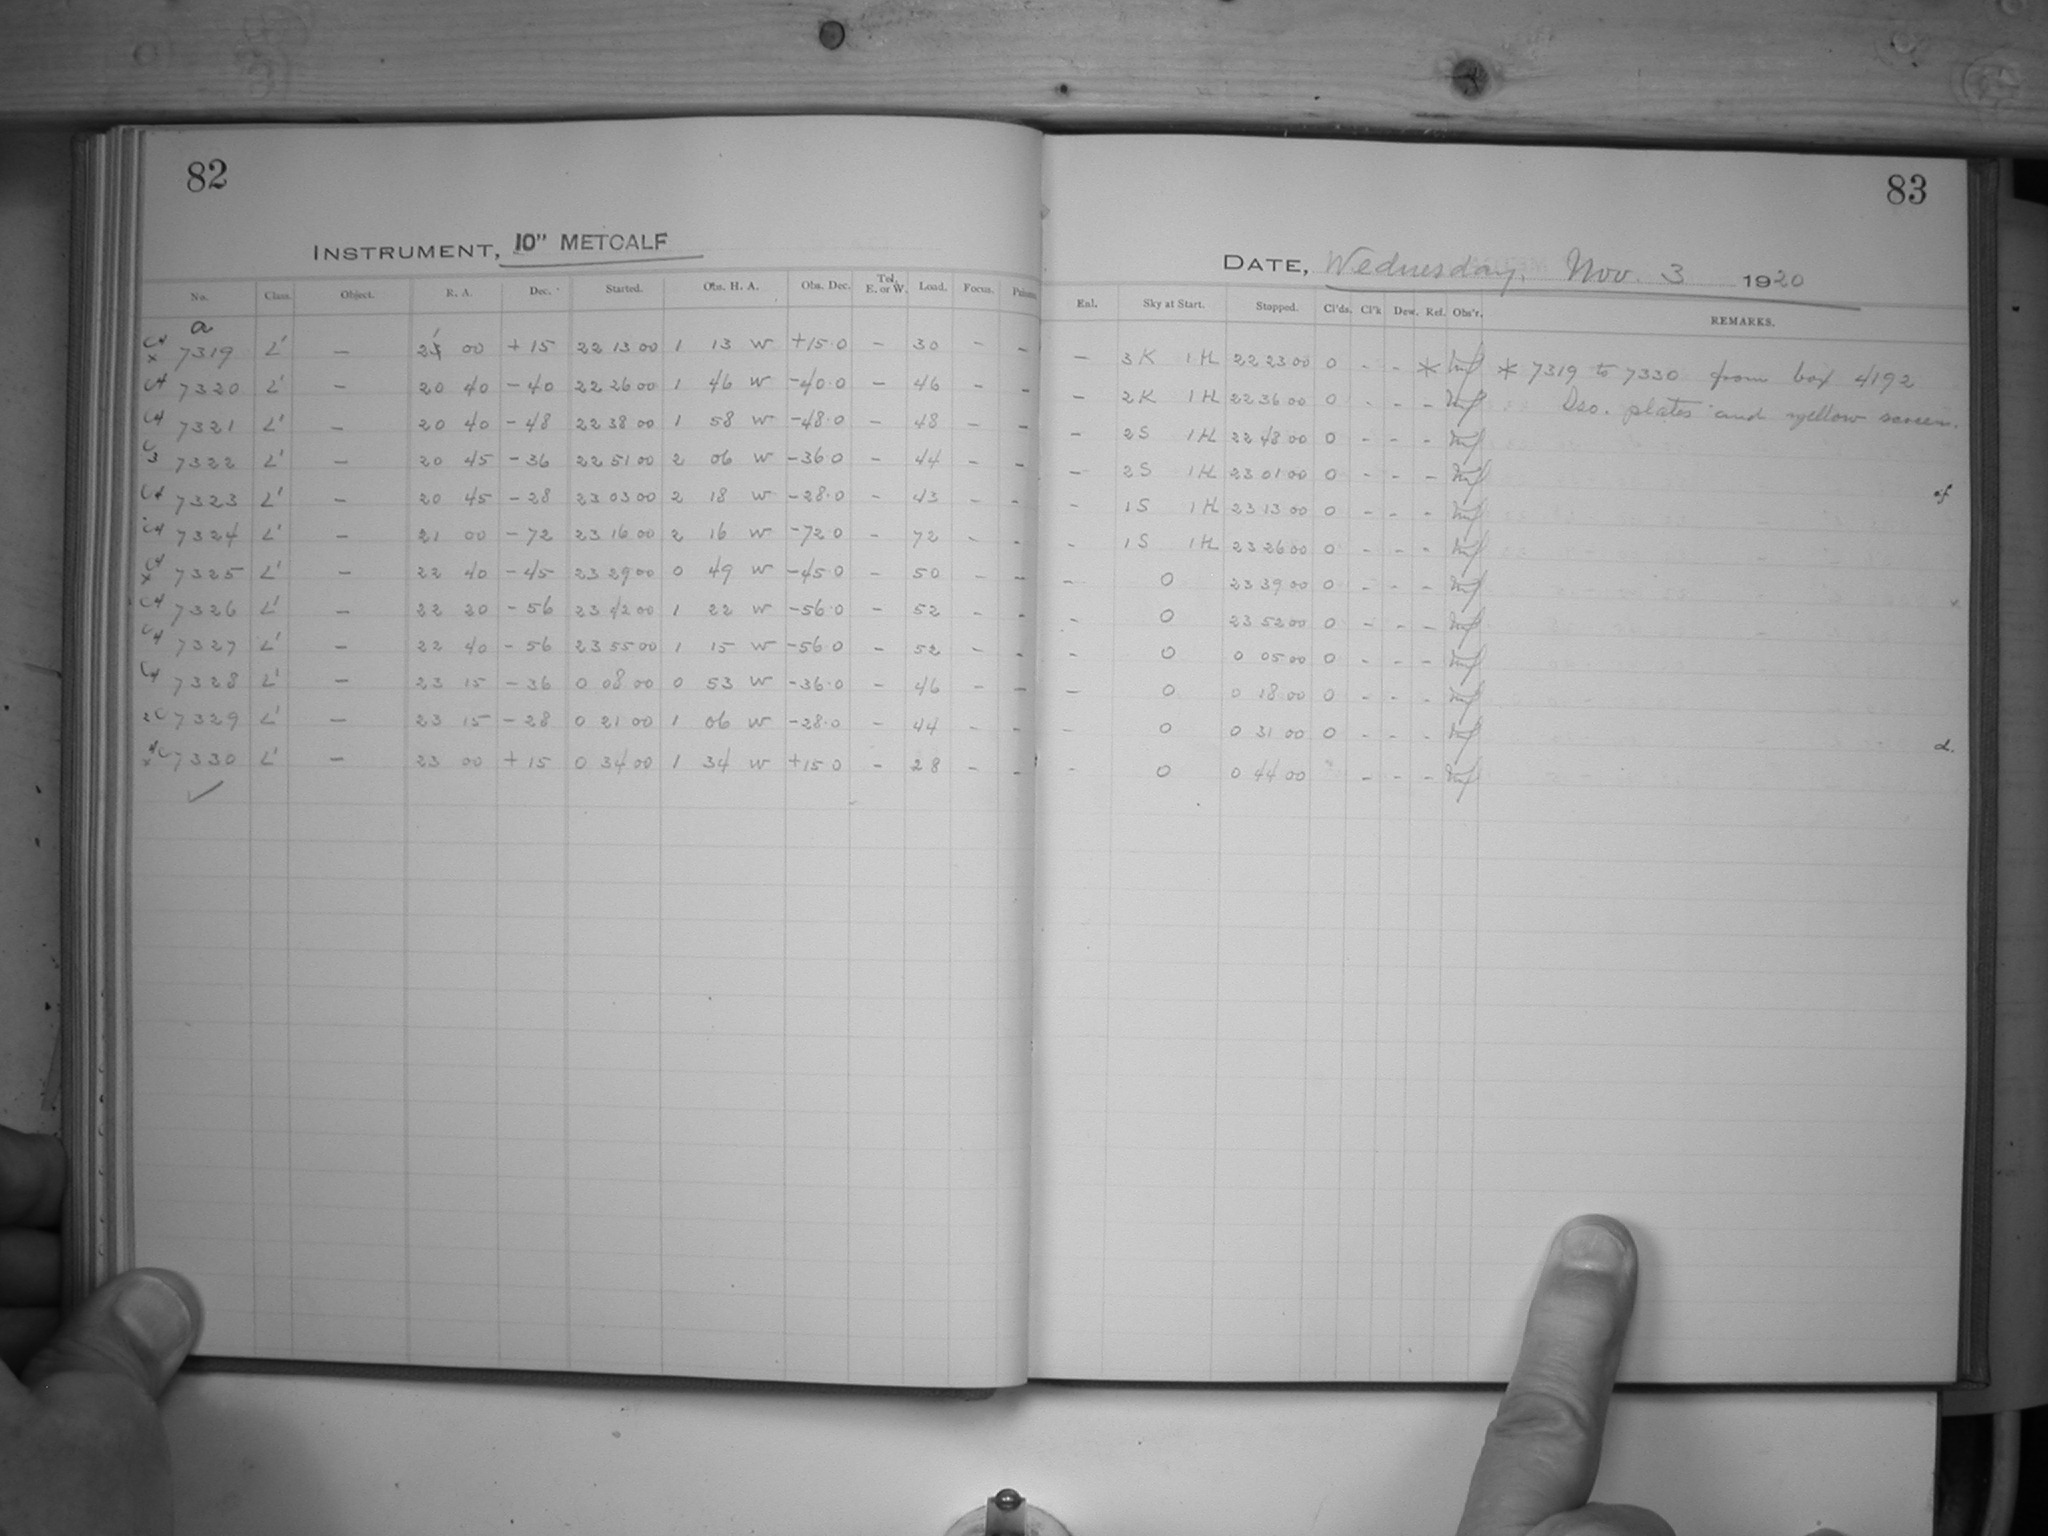 82
INSTRUMENT, 10" METCALF
No. Class. Object. R. A. Dec. Started. Obs. H. A. Obs. Dec. Tel. E. or W. Load. Focus.
a
7319 L' — 00 +15 22 13 00 1 13 W +15.0 – 30 – –
7320 L' — 20 40 –40 22 26 00 1 46 W –40.0 – 46 – –
7321 L' — 20 40 –48 22 38 00 1 58 W –48.0 – 48 – –
7322 L' — 20 45 –36 22 51 00 2 06 W –36 0 – 44 – –
7323 L' — 20 45 –28 23 03 00 2 18 W –28.0 – 43 – –
7324 L' — 21 00 –72 23 16 00 2 16 W –72 0 – 72 – –
7325 L' — 22 40 –45 23 29 00 0 49 W –45 0 – 50 – –
7326 L' — 22 20 –56 23 42 00 1 22 W –56.0 – 52 – –
7327 L' — 22 40 –56 23 55 00 1 15 W –56 0 – 52 – –
7328 L' — 23 15 –36 0 08 00 0 53 W –36.0 – 46 – –
7329 L' — 23 15 –28 0 21 00 1 06 W –28.0 – 44 – –
7330 L' — 23 00 +15 0 34 00 1 34 W +15 0 – 28 – –
83
DATE, Wednesday, Nov. 3 1920
Enl. Sky at Start. Stopped. Cl'ds. Cl'k Dew. Ref. Obs'r. REMARKS.
– 3K 1H 22 23 00 0 - - * * 7319 to 7330 from box 4192
– 2K 1H 22 36 00 0 - - – Iso. plates and yellow screen.
– 2S 1H 22 48 00 0 - - -
– 2S 1H 23 01 00 0 - - -
– 1S 1H 23 13 00 0 - - -
– 1S 1H 23 26 00 0 - - -
– 0 23 39 00 0 - - -
– 0 23 52 00 0 - - -
– 0 0 05 00 0 - - -
– 0 0 18 00 0 - - -
– 0 0 31 00 0 - - -
d.
– 0 0 44 00 - - -